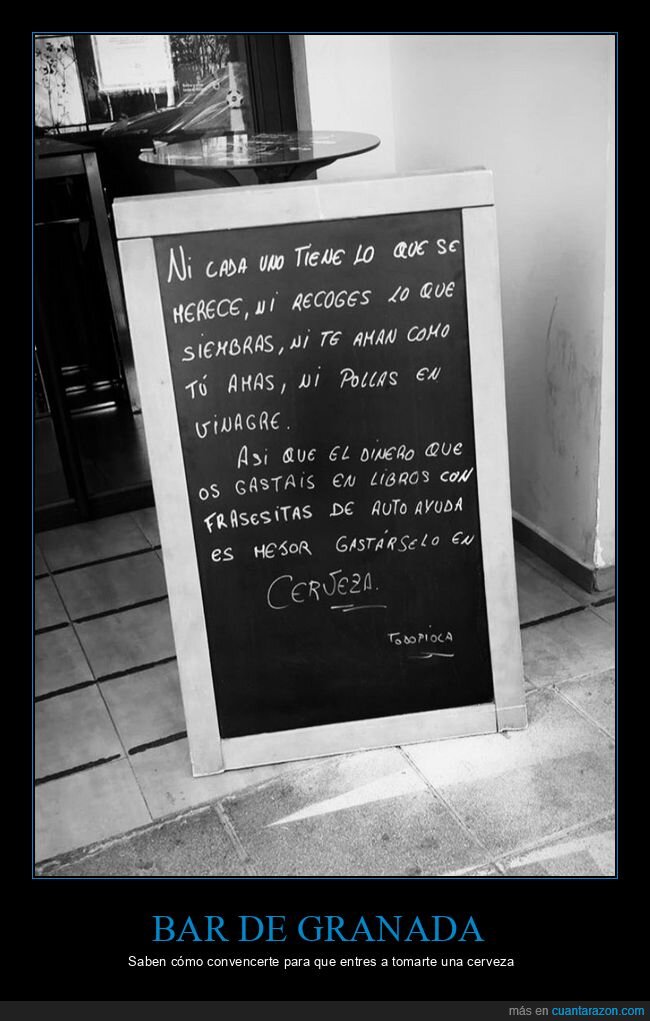 Ni CADA UNO TIENE LO QUE SE
MERECE, Ni RECOGES LO QUE
SIEMBRAS, Ni TE AMAN COMO
TÚ AMAS, Ni POLLAS EN
ViNAGRE.
ASi QUE EL DiNERO QUE
OS GASTAiS EN LiBROS CON
FRASESiTAS DE AUTO AYUDA
ES MEJOR GASTÁRSELO EN
CERVEZA.
TODOPiOCA
BAR DE GRANADA
Saben cómo convencerte para que entres a tomarte una cerveza
más en cuantarazon.com